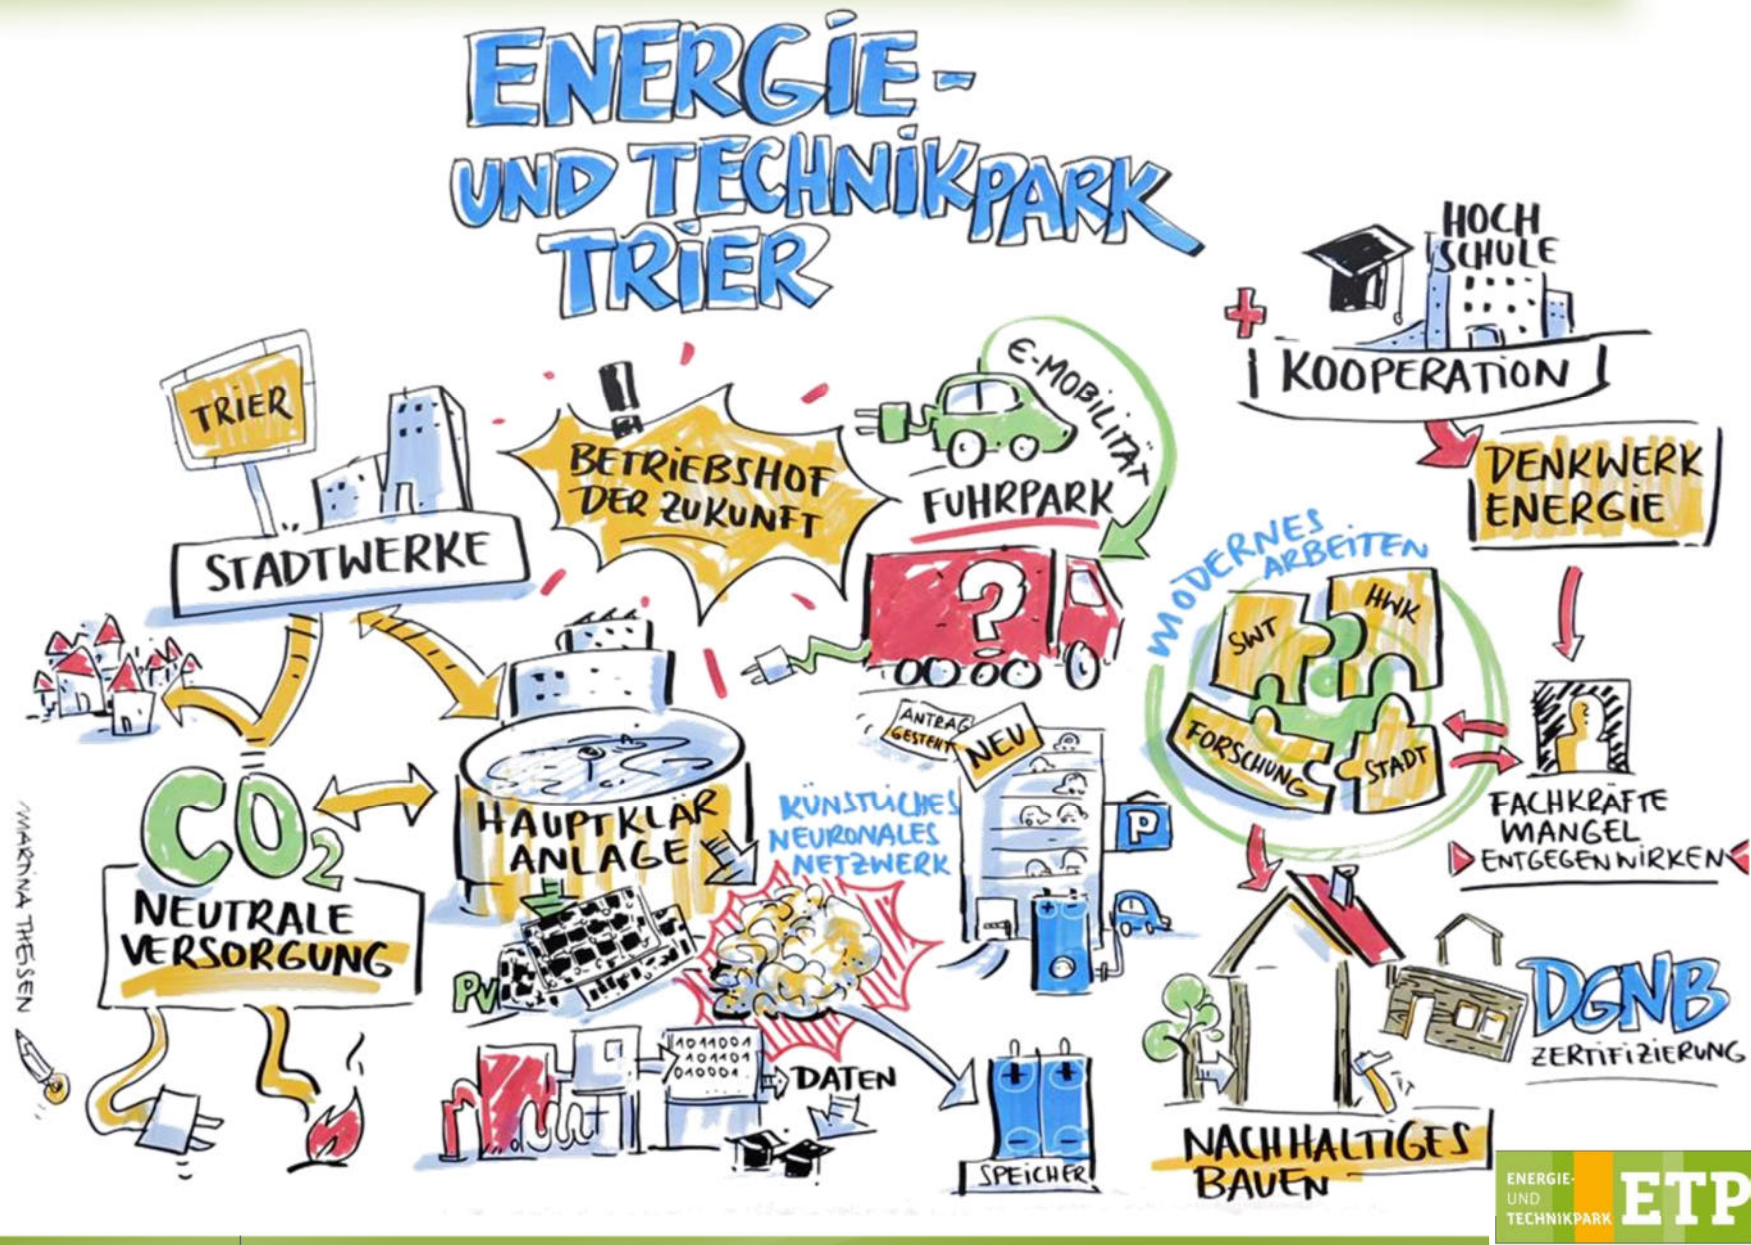 ENERGIE-
UND TECHNIKPARK
TRIER
HOCH
SCHULE
+
KOOPERATION
TRIER
STADTWERKE
!
BETRIEBSHOF
DER ZUKUNFT
E-MOBILITÄT
FUHRPARK
?
DENKWERK
ENERGIE
MODERNES
ARBEITEN
SWT
HWK
FORSCHUNG
STADT
FACHKRÄFTE
MANGEL
ENTGEGENWIRKEN
ANTRAG
GESTELLT
NEU
P
CO2
NEUTRALE
VERSORGUNG
HAUPTKLÄR
ANLAGE
KÜNSTLICHES
NEURONALES
NETZWERK
PV
1011001
101101
010001
DATEN
+ +
- -
SPEICHER
DGNB
ZERTIFIZIERUNG
NACHHALTIGES
BAUEN
MARTINA THEISEN
ENERGIE-
UND
TECHNIKPARK
ETP